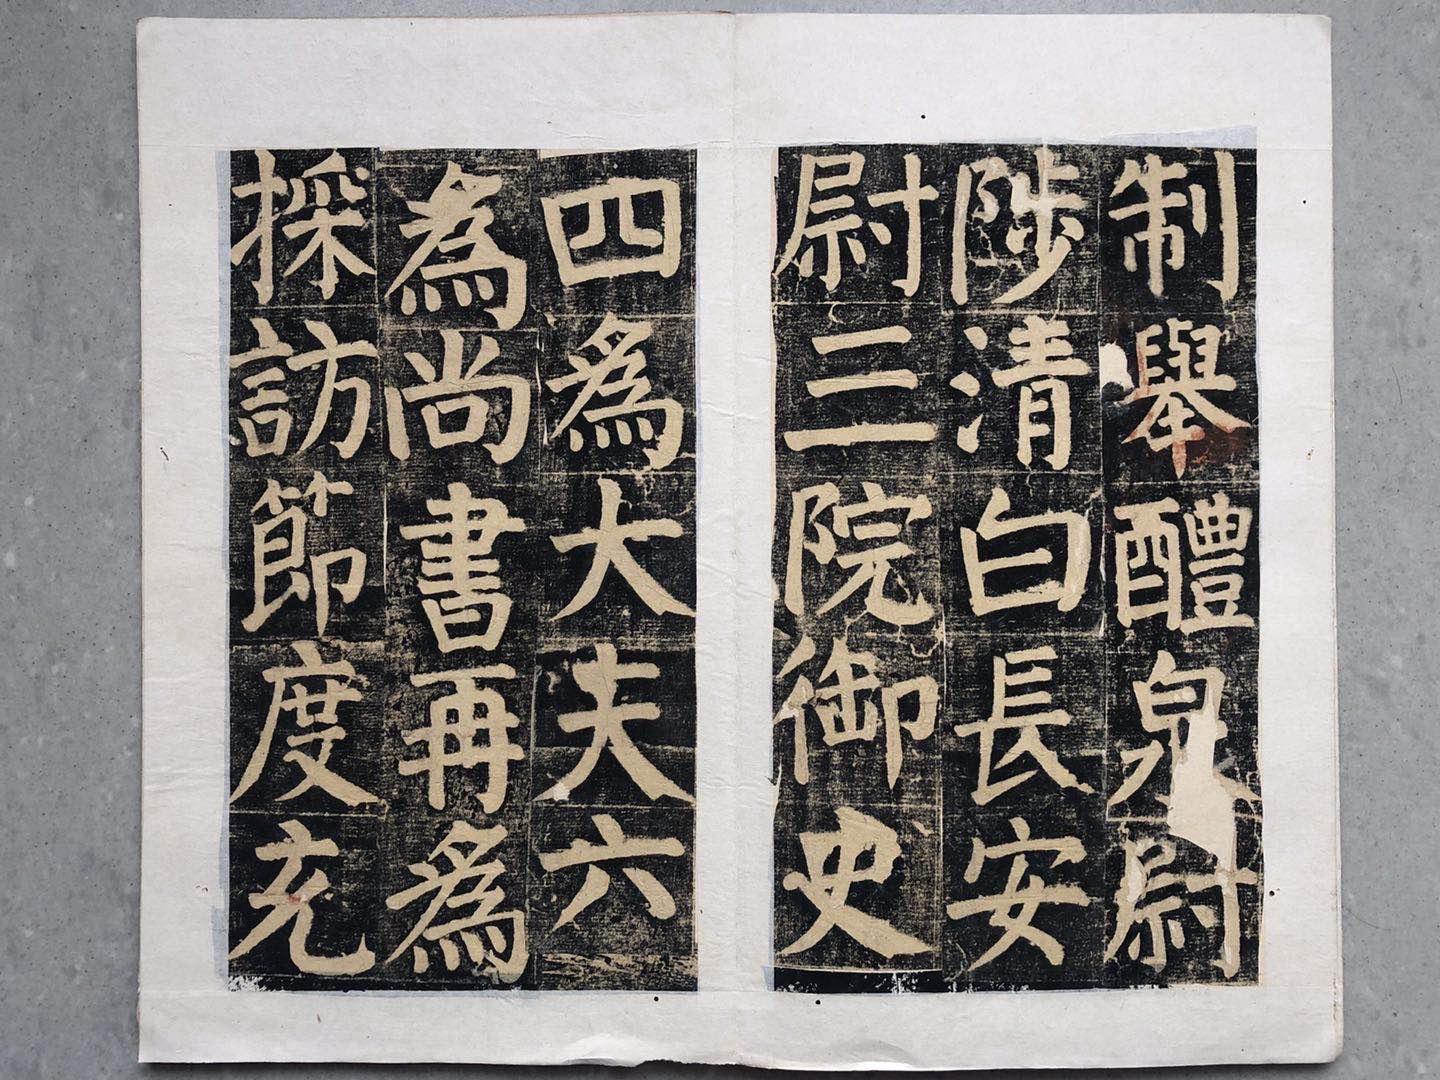 制舉醴泉尉
陟清白長安
尉三院御史
四為大夫六
為尚書再為
採訪節度充